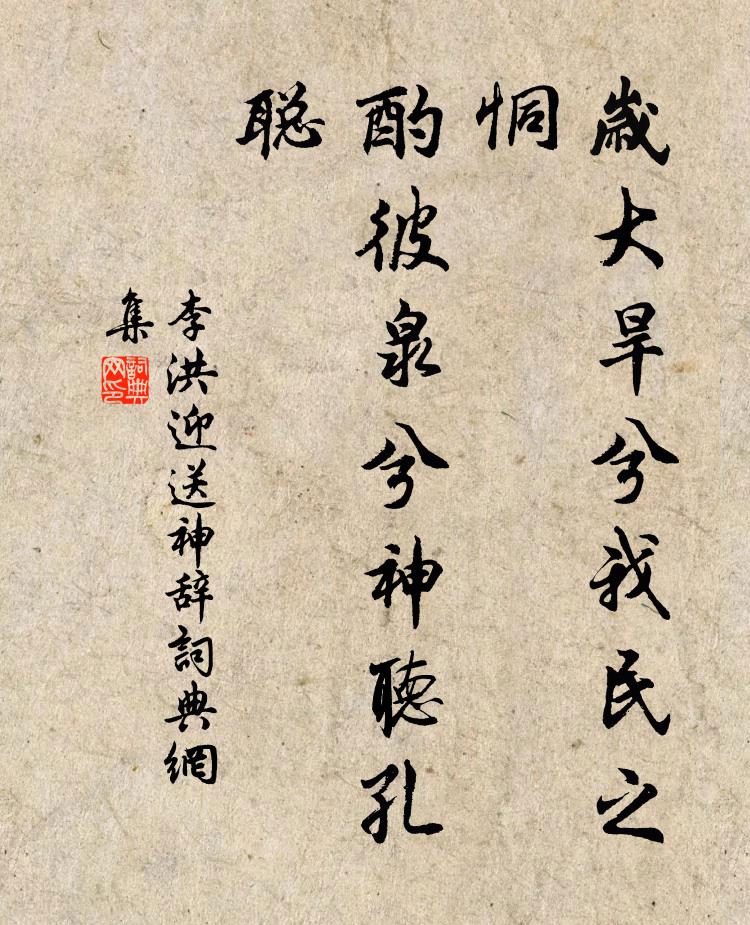 歲大旱兮我民之
恫
酌彼泉兮神聽孔
聡
李洪迎送神辞詞典網
集
詞典
网印